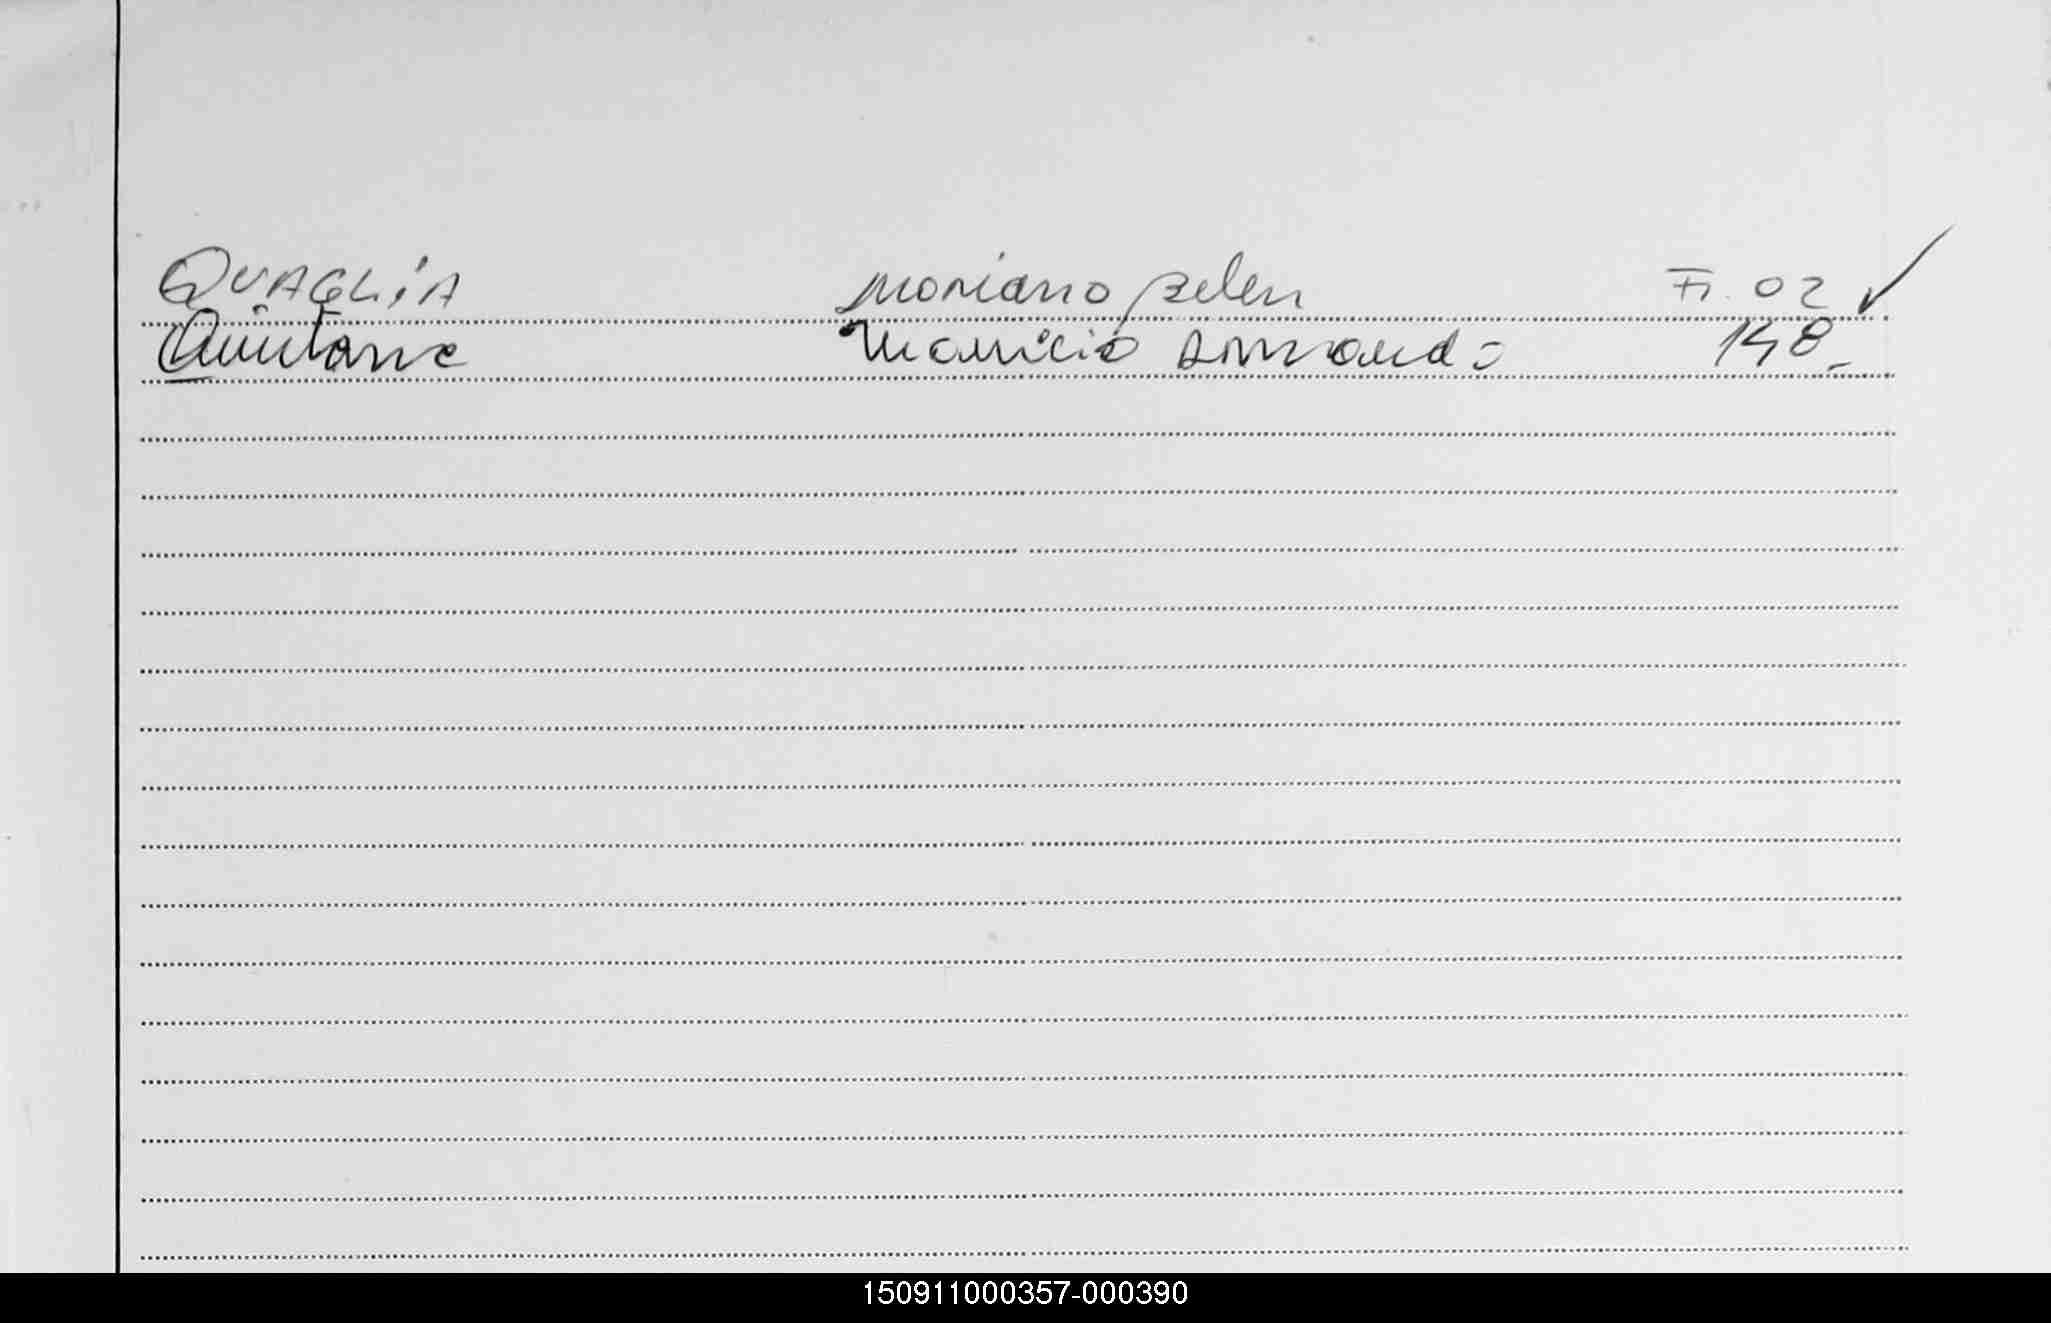 QUAGLiA Mariano Belen Fi. 02 ✓
Quintana Mauricio Armando 148_
150911000357-000390